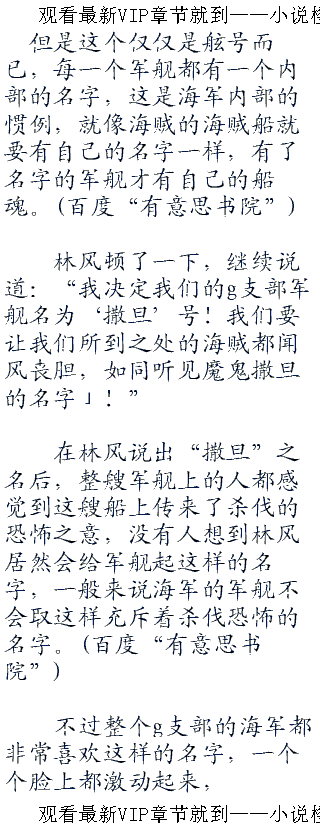 观看最新VIP章节就到——小说
但是这个仅仅是舷号而
已，每一个军舰都有一个内
部的名字，这是海军内部的
惯例，就像海贼的海贼船就
要有自己的名字一样，有了
名字的军舰才有自己的船
魂。(百度“有意思书院”)
林风顿了一下，继续说
道：“我决定我们的g支部军
舰名为‘撒旦’号！我们要
让我们所到之处的海贼都闻
风丧胆，如同听见魔鬼撒旦
的名字」！”
在林风说出“撒旦”之
名后，整艘军舰上的人都感
觉到这艘船上传来了杀伐的
恐怖之意，没有人想到林风
居然会给军舰起这样的名
字，一般来说海军的军舰不
会取这样充斥着杀伐恐怖的
名字。(百度“有意思书
院”)
不过整个g支部的海军都
非常喜欢这样的名字，一个
个脸上都激动起来，
观看最新VIP章节就到——小说